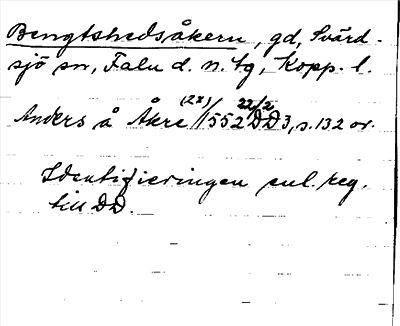 Bengtshedsåkern, gd, Svärd-
sjö sn, Falu d. n. tg, Kopp. l.
(2x) 22/2
Anders å Åkre //1552 DD3, s. 132 or.
Identifieringen enl. reg.
till DD.